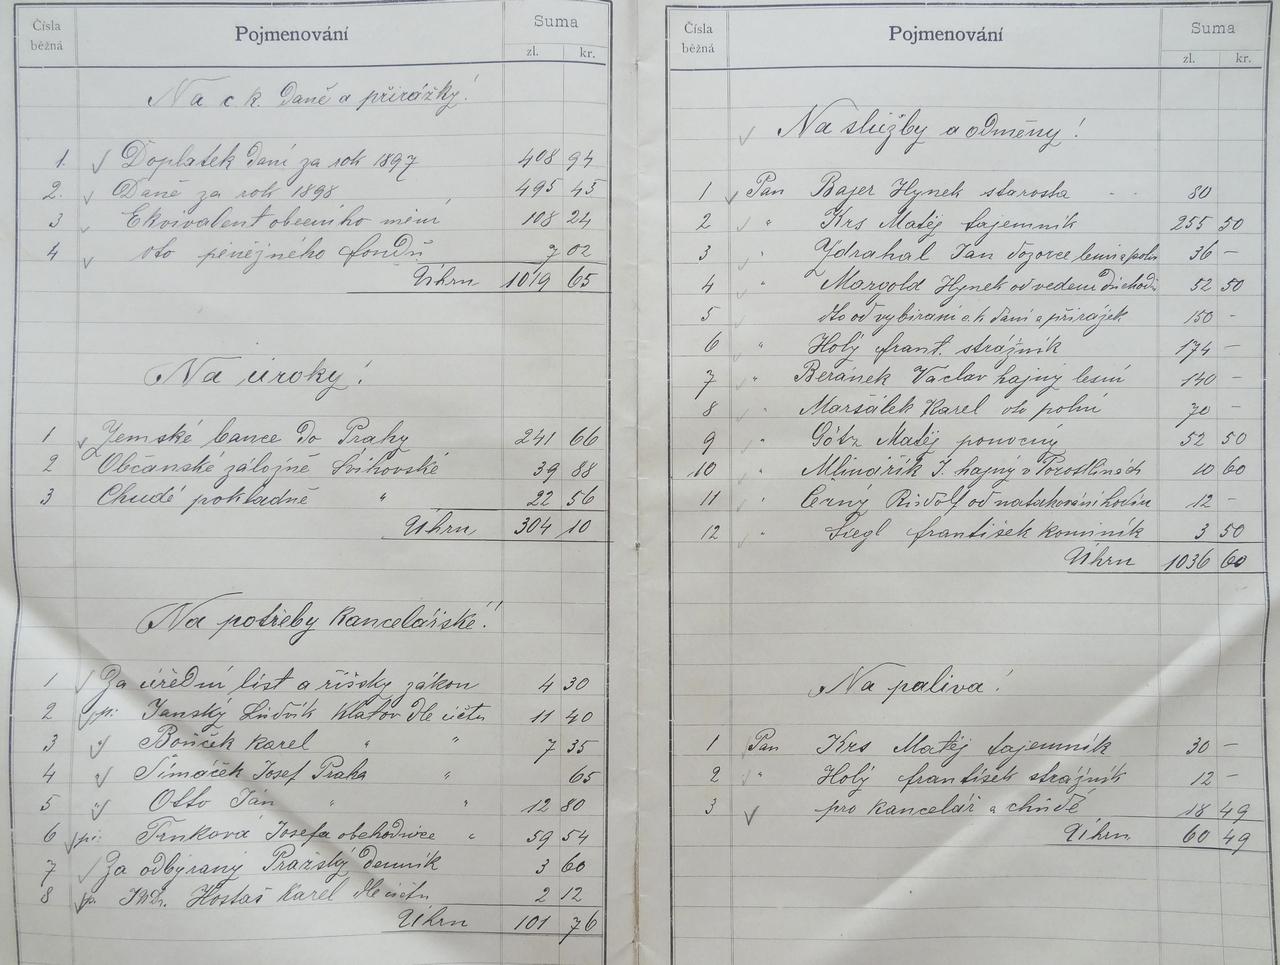 Čísla běžná Pojmenování Suma zl. kr.
Na c k. daně a přirážky!
1. Doplatek daní za rok 1897 408 94
2. Daně za rok 1898 495 45
3 Ekvivalent obecního mění 108 24
4 oto peněžného fondu 7 02
Úhrn 1019 65
Na úroky!
1 Zemské bance do Prahy 241 66
2 Občanské záložně Švihovské 39 88
3 Chudé pokladně " 22 56
Úhrn 304 10
Na potřeby kancelářské!
1 Za úřední list a říšský zákon 4 30
2 p: Janský Ludvík Klatov dle účtu 11 40
3 " Bouček Karel " " 7 35
4 " Šimáček Josef Praha " 65
5 " Otto Jan " " 12 80
6 pí: Trnkova Josefa obchodnice " 59 54
7 Za odbýraný Pražský denník 3 60
8 p. JUDr. Hostaš Karel dle účtu 2 12
Úhrn 101 76
Čísla běžná Pojmenování Suma zl. kr.
Na služby a odměny!
1 Pan Bajer Hynek starosta 80
2 " Krs Matěj tajemník 255 50
3 " Zdrahal Jan dozorce lesní a polní 36 –
4 " Margold Hynek od vedení důchodů 52 50
5 dto od vybírání c. k. daní a přirážek 150 –
6 " Holý frant. strážník 174 –
7 " Beránek Vaclav hajný lesní 140 –
8 " Maršálek Karel oto polní 70 –
9 " Götz Matěj ponocný 52 50
10 " Mlinářík J. hajný v 10 60
11 " Černý Rudolf od natahování hodin 12 –
12 " Siegl františek kominík 3 50
Úhrn 1036 60
Na paliva!
1 Pan Krs Matěj tajemník 30 –
2 " Holý františek strážník 12 –
3 pro kancelář a chudé 18 49
Úhrn 60 49